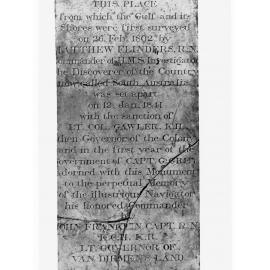 THIS PLACE
from which the Gulf and its
Shores were first surveyed
on 26. Feb. 1802. by
MATTHEW FLINDERS. R.N.
Commander of H.M.S. Investigator
the Discoverer of the Country
now called South Australia
was set apart
on 12. Jan. 1841
with the sanction of
LT. COL. GAWLER. K.H.
then Governor of the Colony
and in the first year of the
Government of CAPT. G. GREY
adorned with this Monument
to the perpetual Memory
of the illustrious Navigator
his honored Commander
by
JOHN FRANKLIN CAPT. R.N.
K.C.H. K.R.
LT. GOVERNOR OF
VAN DIEMEN'S LAND